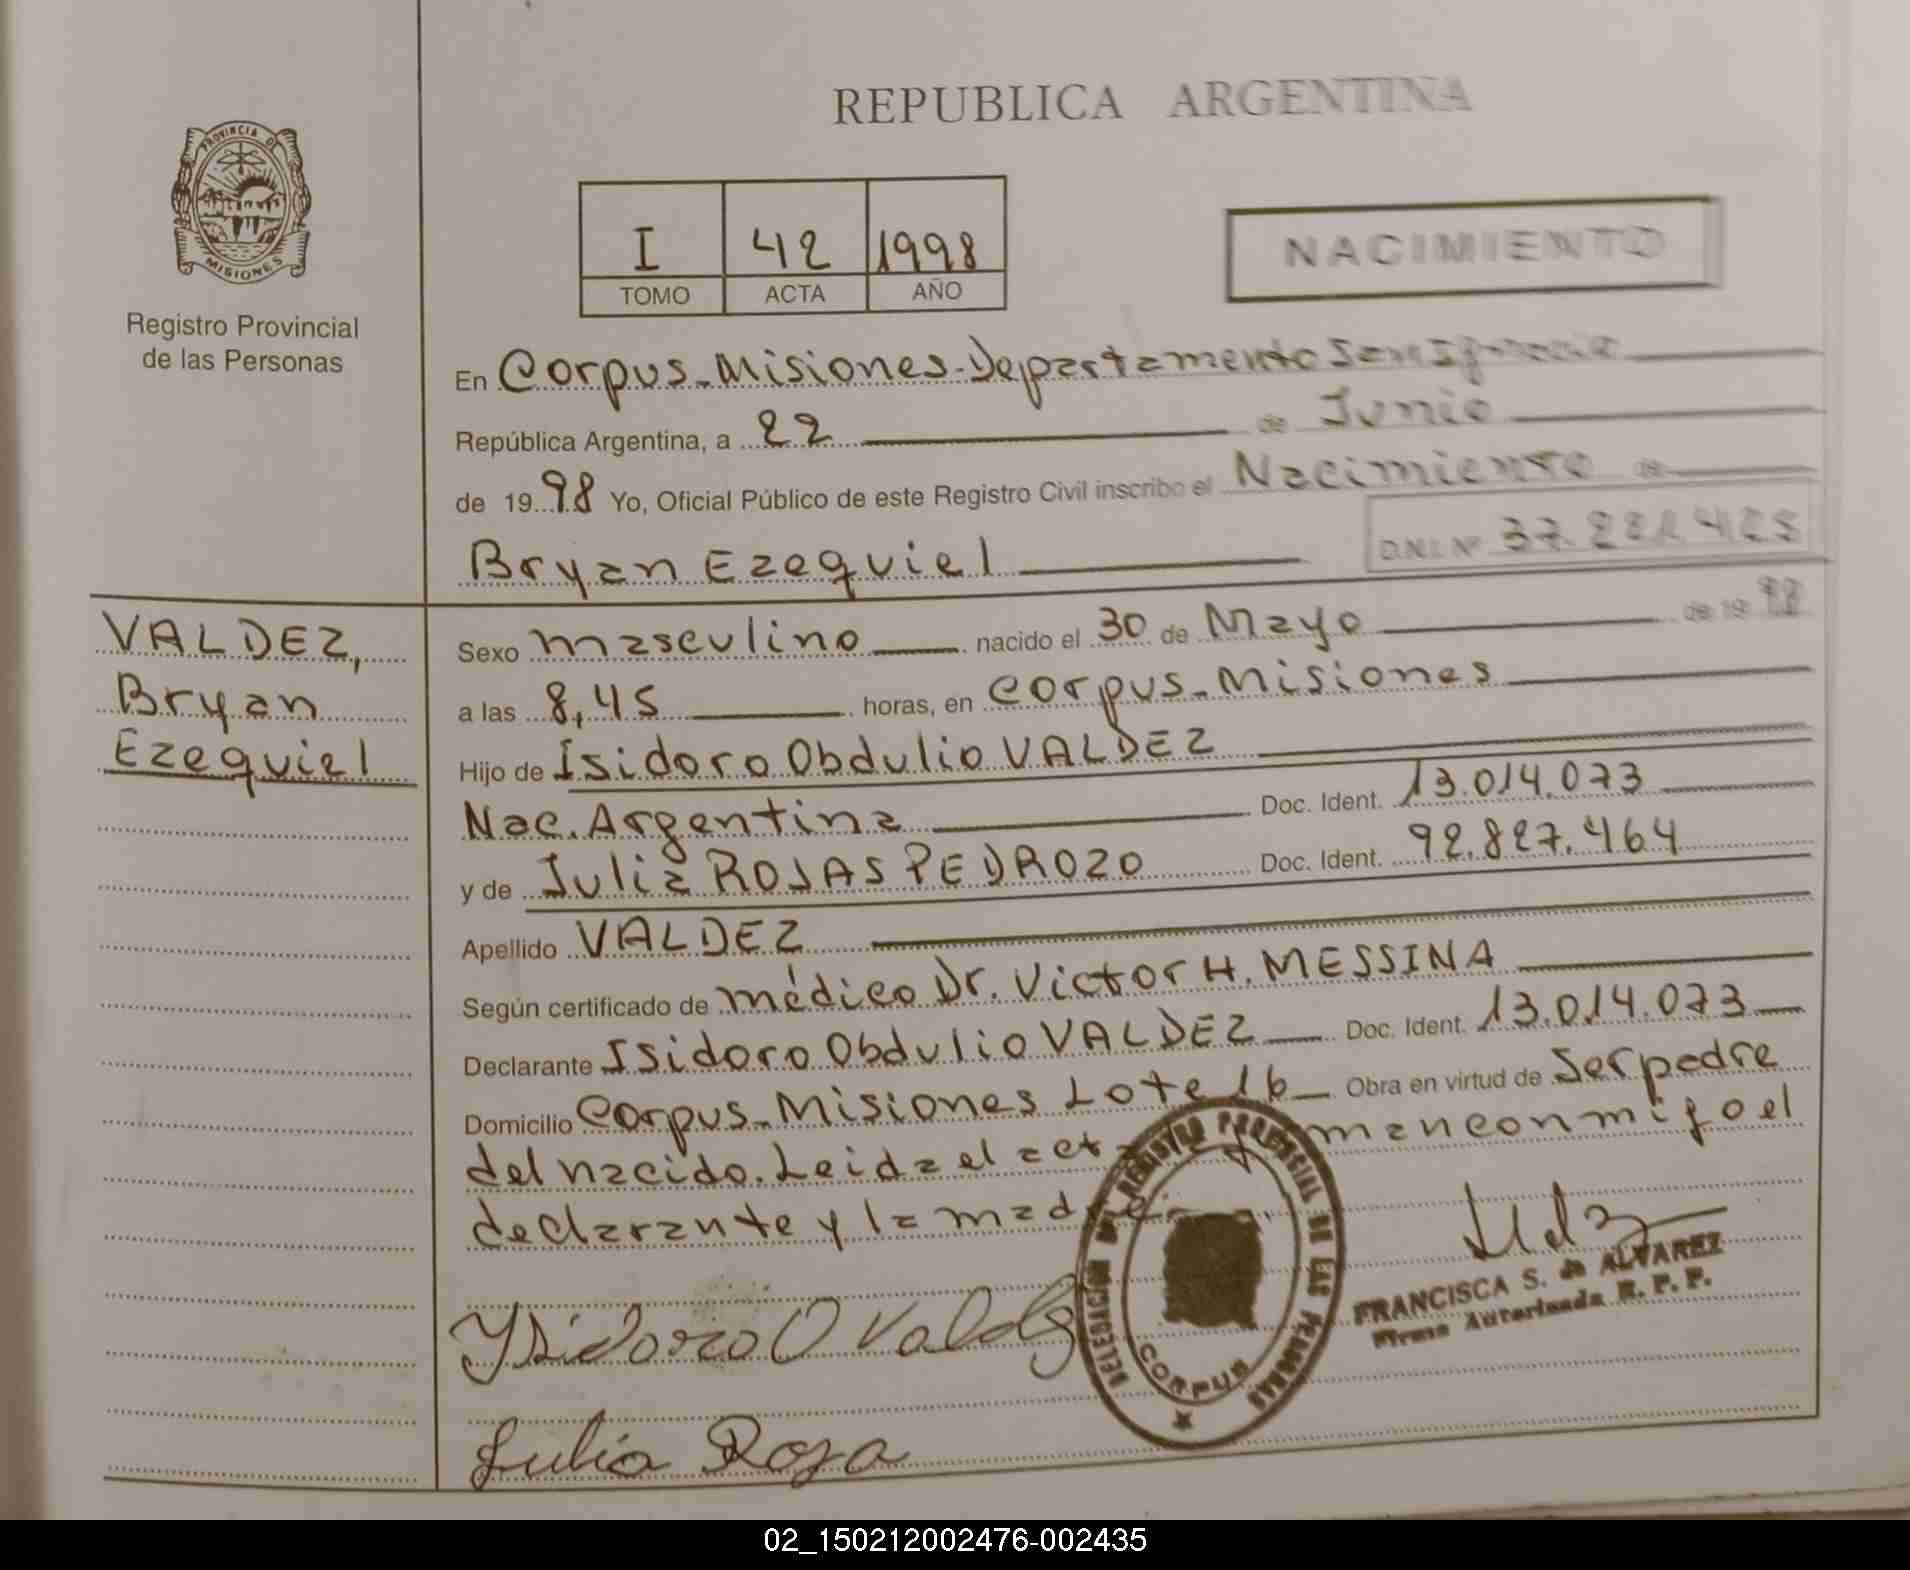 REPUBLICA ARGENTINA
PROVINCIA DE
MISIONES
Registro Provincial
de las Personas
I 42 1998
TOMO ACTA AÑO
NACIMIENTO
En Corpus-Misiones-Departamento San Ignacio
República Argentina, a 22 de Junio
de 1998 Yo, Oficial Público de este Registro Civil inscribo el Nacimiento de
Bryan Ezequiel D.N.I. Nº
VALDEZ,
Bryan
Ezequiel
Sexo masculino nacido el 30 de Mayo de 1998
a las 8,45 horas, en Corpus-Misiones
Hijo de Isidoro Obdulio VALDEZ
Nac. Argentina Doc. Ident. 13.014.073
y de Julia ROJAS PEDROZO Doc. Ident. 92.827.464
Apellido VALDEZ
Según certificado de médico Dr. Victor H. MESSINA
Declarante Isidoro Obdulio VALDEZ Doc. Ident. 13.014.073
Domicilio Corpus-Misiones Lote 16 Obra en virtud de Ser padre
del nacido. Leida el acta conmigo el
declarante y la madre
Ysidoro O Valdez
Julia Roja
DELEGACION DEL REGISTRO PROVINCIAL DE LAS PERSONAS
CORPUS
FRANCISCA S. de ALVAREZ
Firma Autorizada R. P. P.
02_150212002476-002435